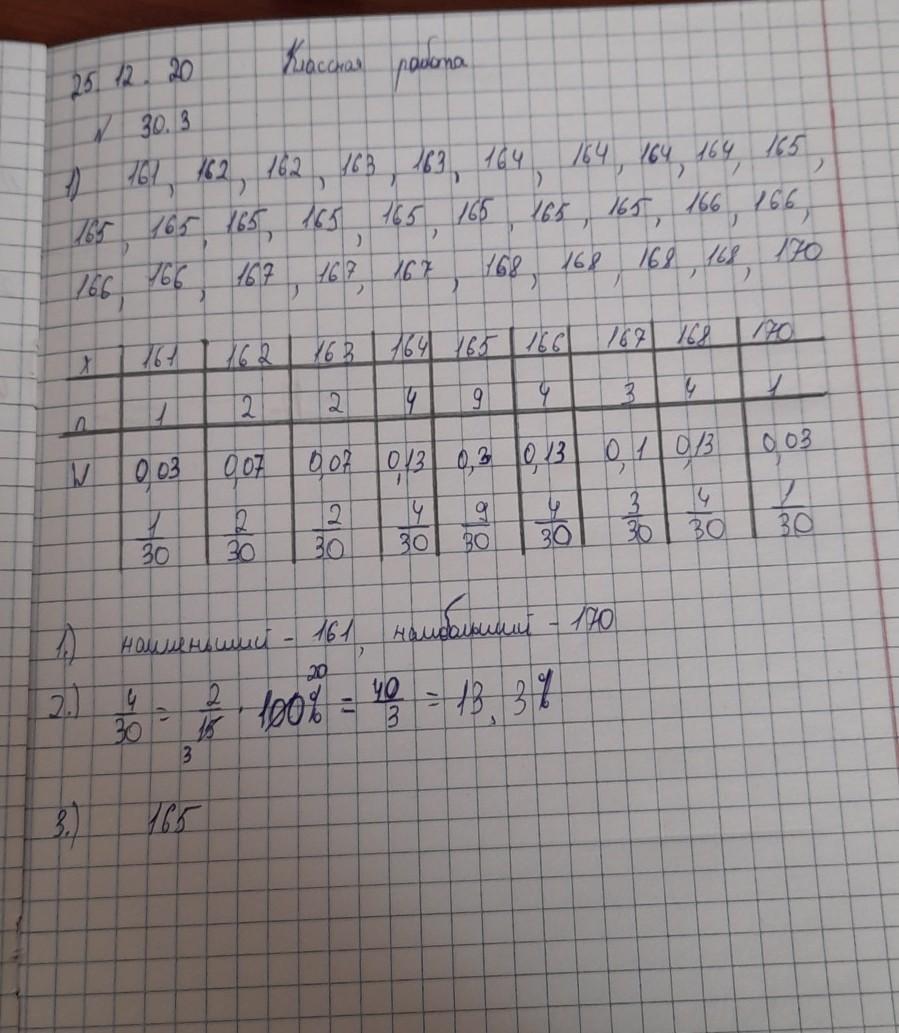 25. 12. 20 Классная работа
№ 30.3
1) 161, 162, 162, 163, 163, 164, 164, 164, 164, 165,
165, 165, 165, 165, 165, 165, 165, 165, 166, 166,
166, 166, 167, 167, 167, 168, 168, 168, 168, 170
x 161 162 163 164 165 166 167 168 170
n 1 2 2 4 9 4 3 4 1
W 0,03 0,07 0,07 0,13 0,3 0,13 0,1 0,13 0,03
1/30 2/30 2/30 4/30 9/30 4/30 3/30 4/30 1/30
1.) наименьший - 161, наибольший - 170
2.) 4/30 = 2/15 3 · 100% 20 = 40/3 = 13,3%
3.) 165